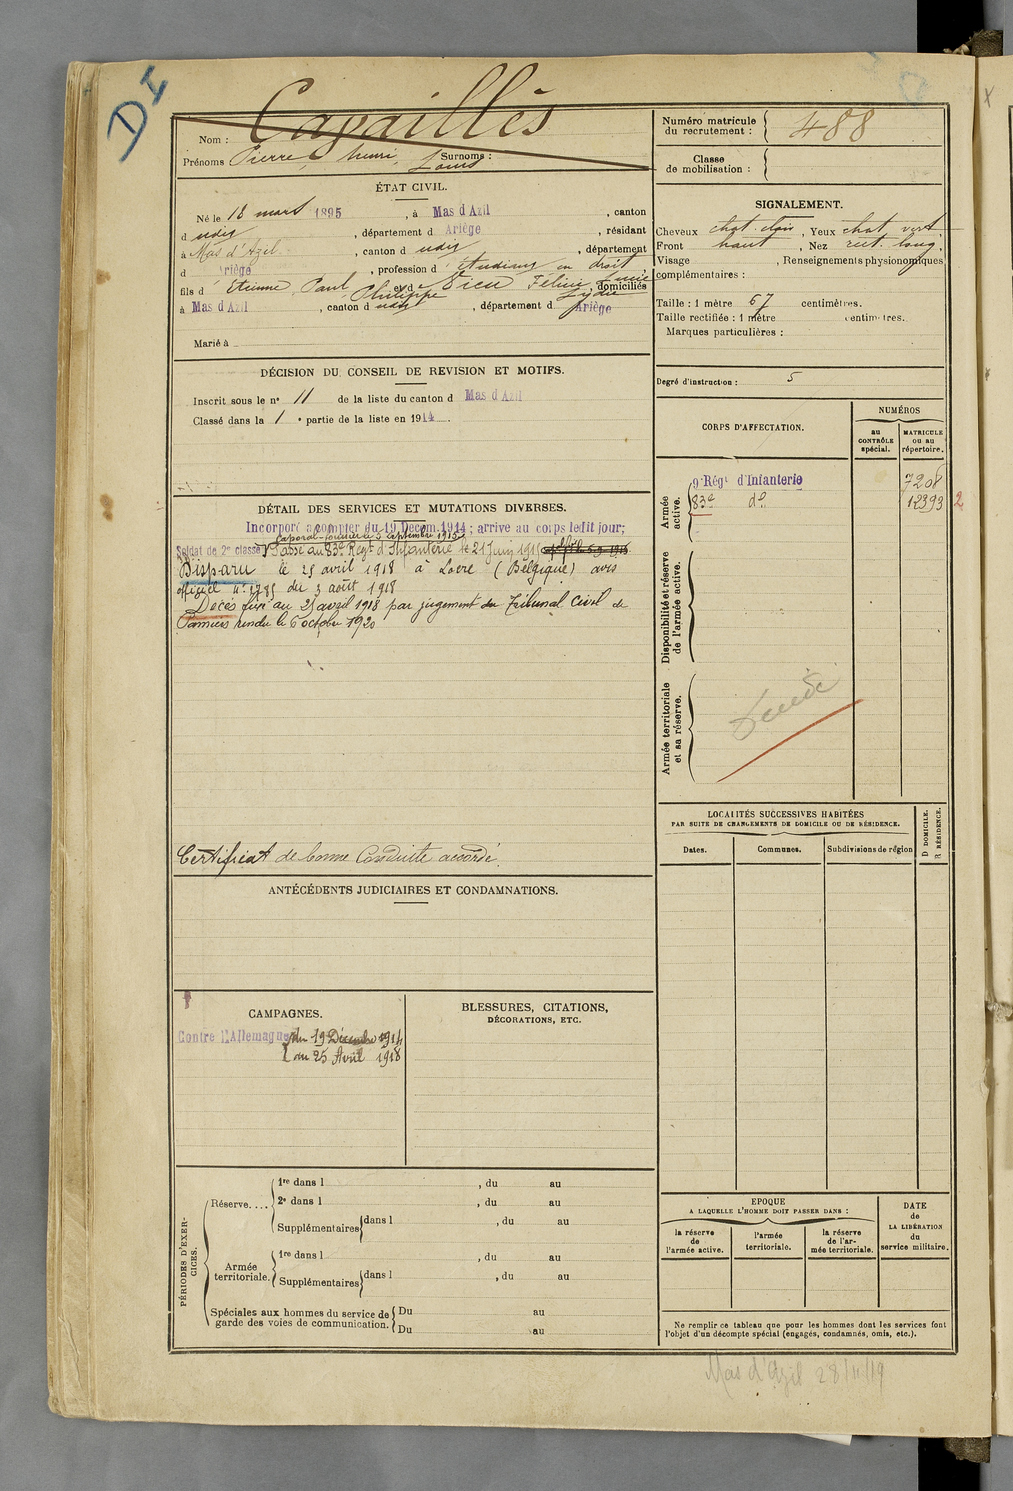 DI
Nom : Capaillès
Prénoms : Pierre Henri Louis Surnoms :
Numéro matricule du recrutement : 488
Classe de mobilisation :
ÉTAT CIVIL.
Né le 18 mars 1895, à Mas d'Azil, canton
d udit, département d Ariège, résidant
à Mas d'Azil, canton d udit, département
d Ariège, profession d' étudiant en droit
fils d' Etienne, Paul Philippe et d Féline Lydie, domiciliés
à Mas d'Azil, canton d udit, département d Ariège
Marié à
SIGNALEMENT.
Cheveux chat. clair, Yeux chat. vert,
Front haut, Nez rect. long,
Visage , Renseignements physionomiques
complémentaires :
Taille : 1 mètre 67 centimètres.
Taille rectifiée : 1 mètre centimètres.
Marques particulières :
Degré d'instruction : 5
DÉCISION DU CONSEIL DE REVISION ET MOTIFS.
Inscrit sous le n° 11 de la liste du canton d Mas d'Azil
Classé dans la 1 e partie de la liste en 1914.
CORPS D'AFFECTATION.
NUMÉROS
au CONTRÔLE spécial.
MATRICULE ou au répertoire.
Armée active.
9e Régt d'Infanterie 7208
83e do 12393 2
Disponibilité et réserve de l'armée active.
Armée territoriale et sa réserve.
DÉTAIL DES SERVICES ET MUTATIONS DIVERSES.
Incorporé à compter du 19 Décem. 1914 ; arrive au corps ledit jour;
Caporal-fourrier le 5 septembre 1915
Soldat de 2e classe Passé au 83e Régt d'Infanterie le 21 Juin 1915
Disparu le 25 avril 1918 à Locre (Belgique) avis
officiel n° du 3 août 1918
Décès fixé au 25 avril 1918 par jugement du Tribunal Civil de
Pamiers rendu le 6 octobre 1920
Certificat de bonne Conduite accordé.
LOCALITÉS SUCCESSIVES HABITÉES
PAR SUITE DE CHANGEMENTS DE DOMICILE OU DE RÉSIDENCE.
D DOMICILE. R RÉSIDENCE.
Dates. Communes. Subdivisions de région
ANTÉCÉDENTS JUDICIAIRES ET CONDAMNATIONS.
CAMPAGNES.
Contre l'Allemagne du 19 Décembre 1914
au 25 Avril 1918
BLESSURES, CITATIONS,
DÉCORATIONS, ETC.
PÉRIODES D'EXERCICES.
Réserve....
1re dans l , du au
2e dans l , du au
Supplémentaires dans l , du au
Armée territoriale.
1re dans l , du au
Supplémentaires dans l , du au
Spéciales aux hommes du service de garde des voies de communication.
Du au
Du au
EPOQUE
A LAQUELLE L'HOMME DOIT PASSER DANS :
la réserve de l'armée active.
l'armée territoriale.
la réserve de l'armée territoriale.
DATE de LA LIBÉRATION du service militaire.
Ne remplir ce tableau que pour les hommes dont les services font
l'objet d'un décompte spécial (engagés, condamnés, omis, etc.).
Mas d'Azil 28/11/19